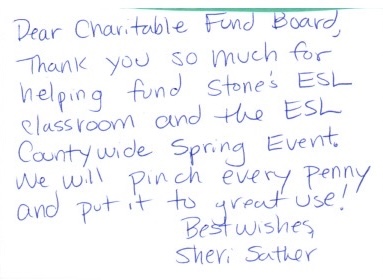 Dear Charitable Fund Board,
Thank you so much for
helping fund Stone's ESL
classroom and the ESL
Countywide Spring Event.
We will pinch every penny
and put it to great use!
Best wishes,
Sheri Sather